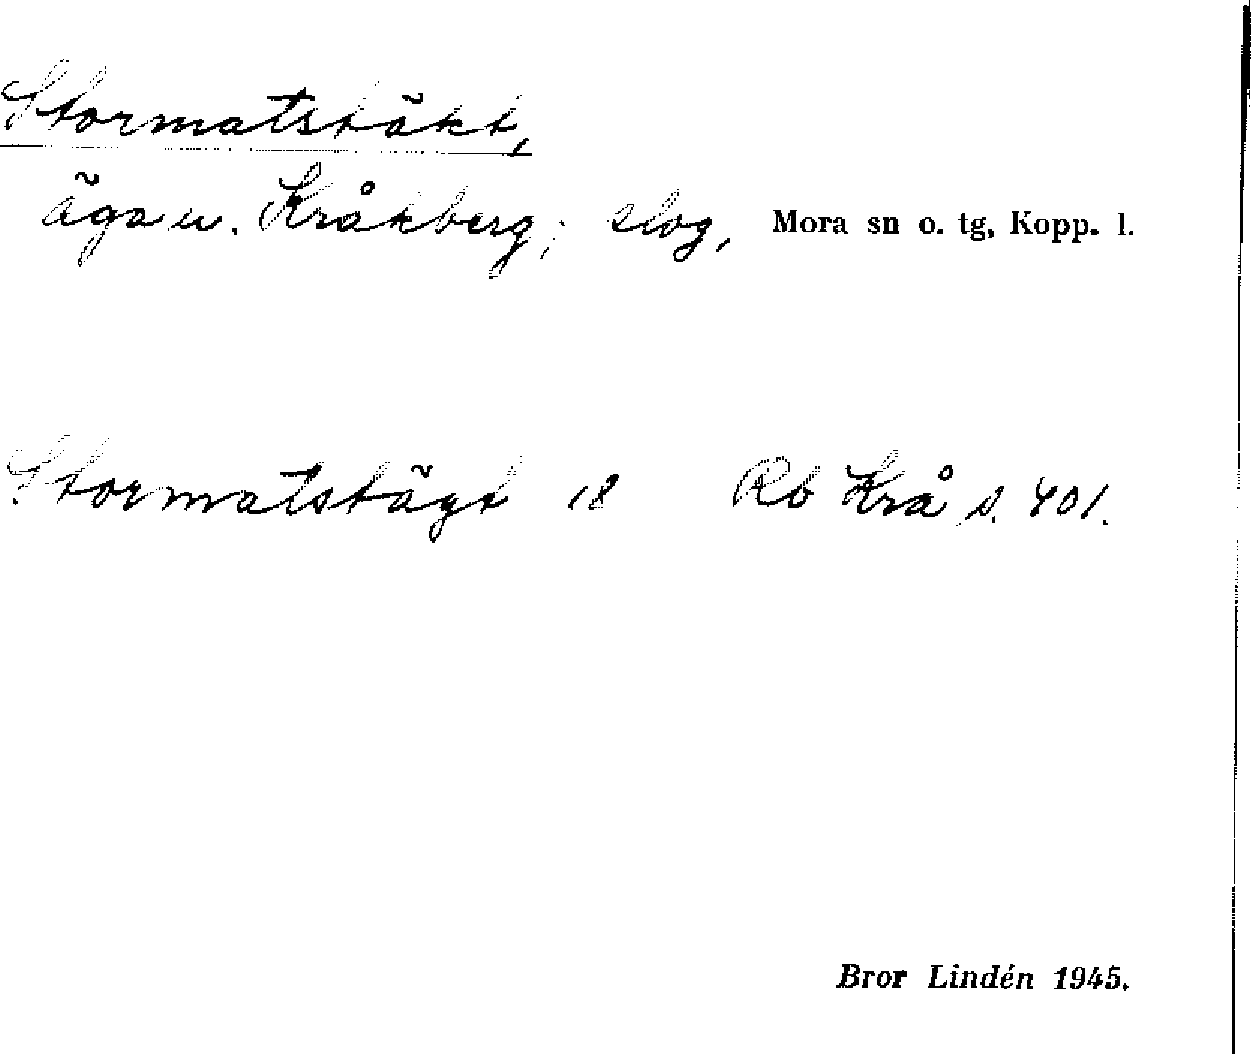 Stormatstäkt,
äga u. Kråkberg; slog, Mora sn o. tg, Kopp. l.
Stormatstägt 18 Rb Krå s. 401.
Bror Lindén 1945.